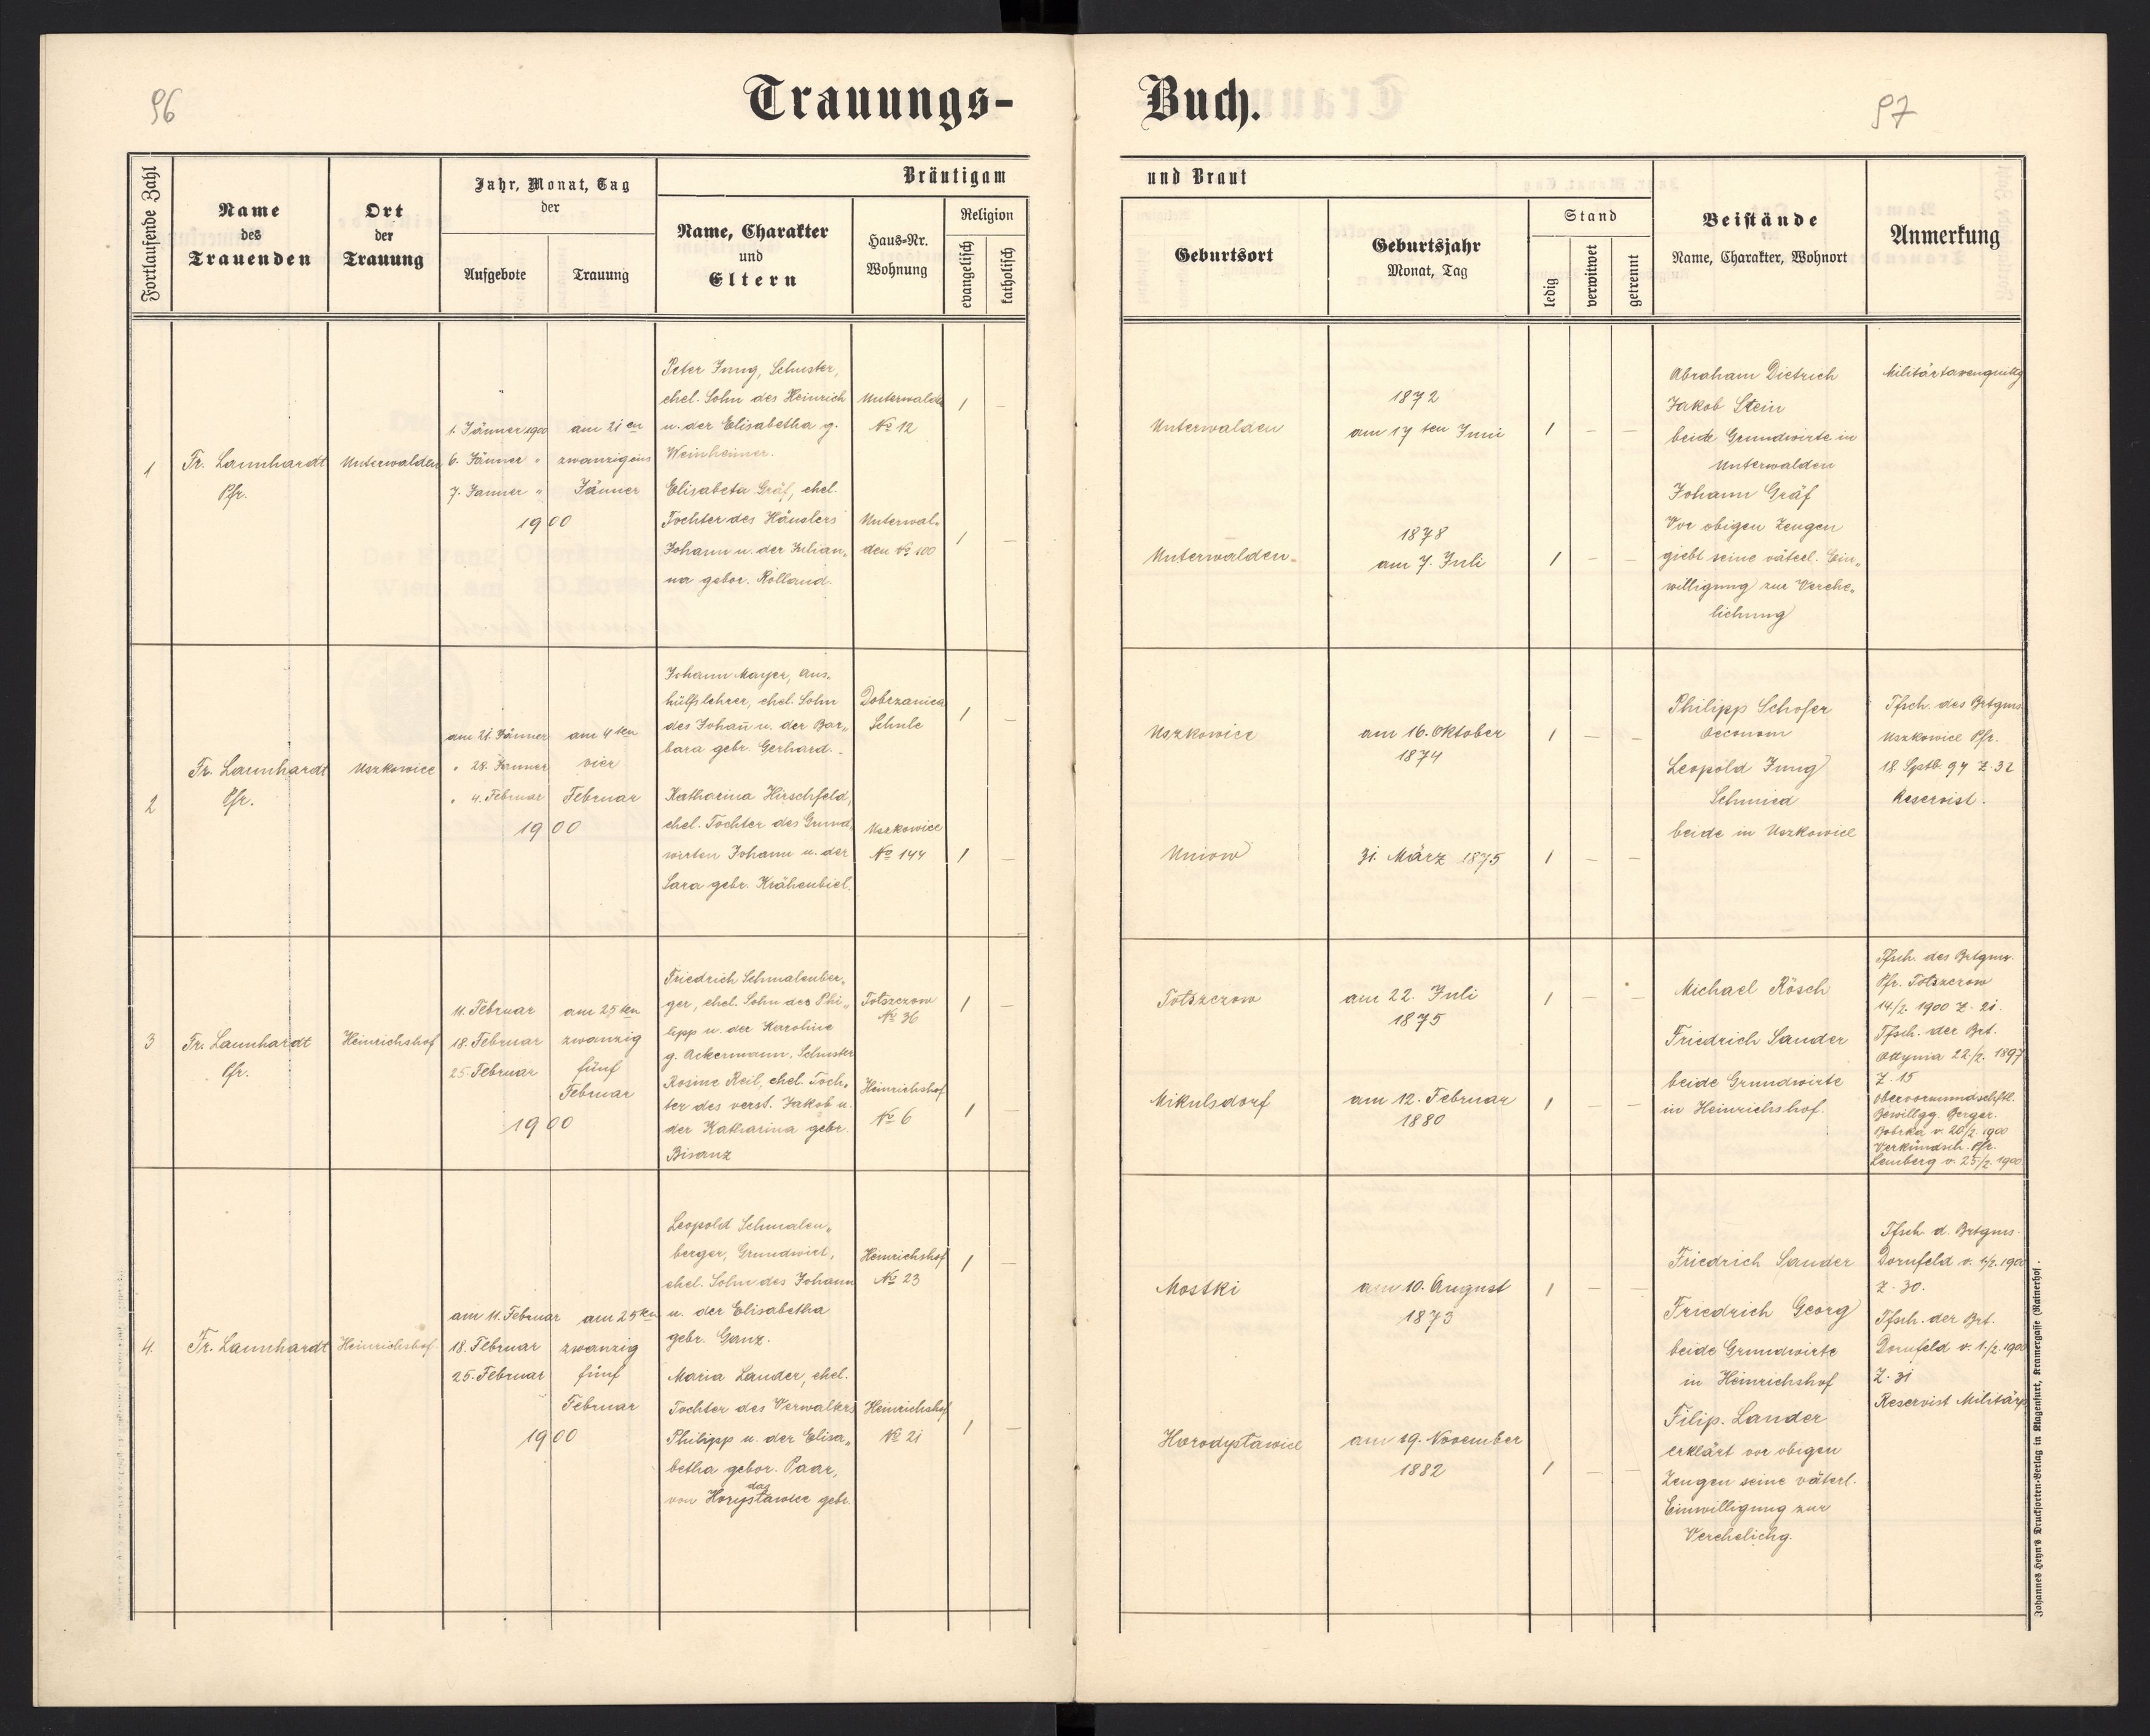 96
Trauungs-
Buch.
97
Fortlaufende Zahl
Name
des
Trauenden
Ort
der
Trauung
Jahr, Monat, Tag
der
Aufgebote
Trauung
Bräutigam
Name, Charakter
und
Eltern
Haus-Nr.
Wohnung
Religion
evangelisch
katholisch
und Braut
Geburtsort
Geburtsjahr
Monat, Tag
Stand
ledig
verwitwet
getrennt
Beistände
Name, Charakter, Wohnort
Anmerkung
1
Fr. Launhardt
Pfr.
Unterwalden
1. Jänner 1900
6. Jänner "
7. Janner "
am 21 en
zwanzigeins
Jänner
1900
Peter Jung, Schuster,
ehel. Sohn des Heinrich
u. der Elisabetha g.
Weinheimer.
Unterwalden
No 12
1 –
Elisabeta Gräf, ehel.
Tochter des Häuslers
Johann u. der Julian„
na gebor. Rolland.
Unterwal„
den No 100
1 –
Unterwalden
1872
am 17 ten Juni
1 – –
Unterwalden
1878
am 7. Juli
1 – –
Abraham Dietrich
Jakob Stein
beide Grundwirte in
Unterwalden
Johann Gräf
Vor obigen Zeugen
giebt seine väterl. Ein„
willigung zur Verehe„
lichung
2
Fr. Launhardt
Pfr.
Uszkowice
am 21. Jänner
" 28. Janner
" 4. Februar
am 4 ten
vier
Februar
1900
Johann Mayer, Aus„
hülfslehrer, ehel. Sohn
des Johañ u. der Bar„
bara gebr. Gerhard.
Dobrzanica
Schule
1 –
Katharina Hirschfeld,
ehel. Tochter des Grund„
wirten Johann u. der
Sara gebr. Krähenbiel.
Uszkowice
No 144
1 –
Uszkowice
am 16. Oktober
1874
1 – –
Uniow
31. März 1875
1 – –
Philipp Schofer
Oeconom
Leopold Jung
Schmied
beide in Uszkowice
Tfsch. des Brtgms.
Uszkowice Pfr.
18. Sptb. 97 Z. 32
Reservist.
3
Fr. Launhardt
Pfr.
Heinrichshof
11. Februar
18. Februar
25. Februar
am 25 ten
zwanzig
fünf
Februar
1900
Friedrich Schmalenber„
ger, ehel. Sohn des Phi„
lipp u. der Karoline
g. Ackermann. Schuster
Totszczow
No 36
1 –
Rosine Reil, ehel. Toch„
ter des verst. Jakob u.
der Katharina gebr.
Bisanz
Heinrichshof
No 6
1 –
Totszczow
am 22. Juli
1875
1 – –
Mikulsdorf
am 12. Februar
1880
1 – –
Michael Rösch
Friedrich Sander
beide Grundwirte
in Heinrichshof.
Tfsch. des Brtgms.
Pfr. Totszczow
14/2. 1900 Z. 21.
Tfsch. der Brt.
Ottynia 22/2. 1897
Z. 15
Obervormundschftl.
Bewillgg. Bzrger.
Bobrka v. 20/2. 1900
Verkündsch. Pfr.
Lemberg v. 25/2. 1900
4.
Fr. Launhardt
Heinrichshof.
am 11. Februar
18. Februar
25. Februar
am 25 ten
zwanzig
fünf
Februar
1900
Leopold Schmalen„
berger, Grundwirt,
ehel. Sohn des Johann
u. der Elisabetha
gebr. Ganz.
Heinrichshof
No 23
1 –
Maria Lander, ehel.
Tochter des Verwalters
Philipp u. der Elisa„
betha gebor. Paar,
Heinrichshof
No 21
1 –
Mostki
am 10. August
1873
1 – –
am 19. November
1882
1 – –
Friedrich Sander
Friedrich Georg
beide Grundwirte
in Heinrichshof
Filip. Lander
erklärt vor obigen
Zeugen seine väterl.
Einwilligung zur
Verehelichg.
Tfsch. d. Brtgms.
Dornfeld v. 1/2. 1900
Z. 30.
Tfsch. der Brt.
Dornfeld v. 1./2. 1900
Z. 31
Reservist
Johannes Heyn's Drucksorten-Verlag in Klagenfurt, Kramergasse (Rainerhof).